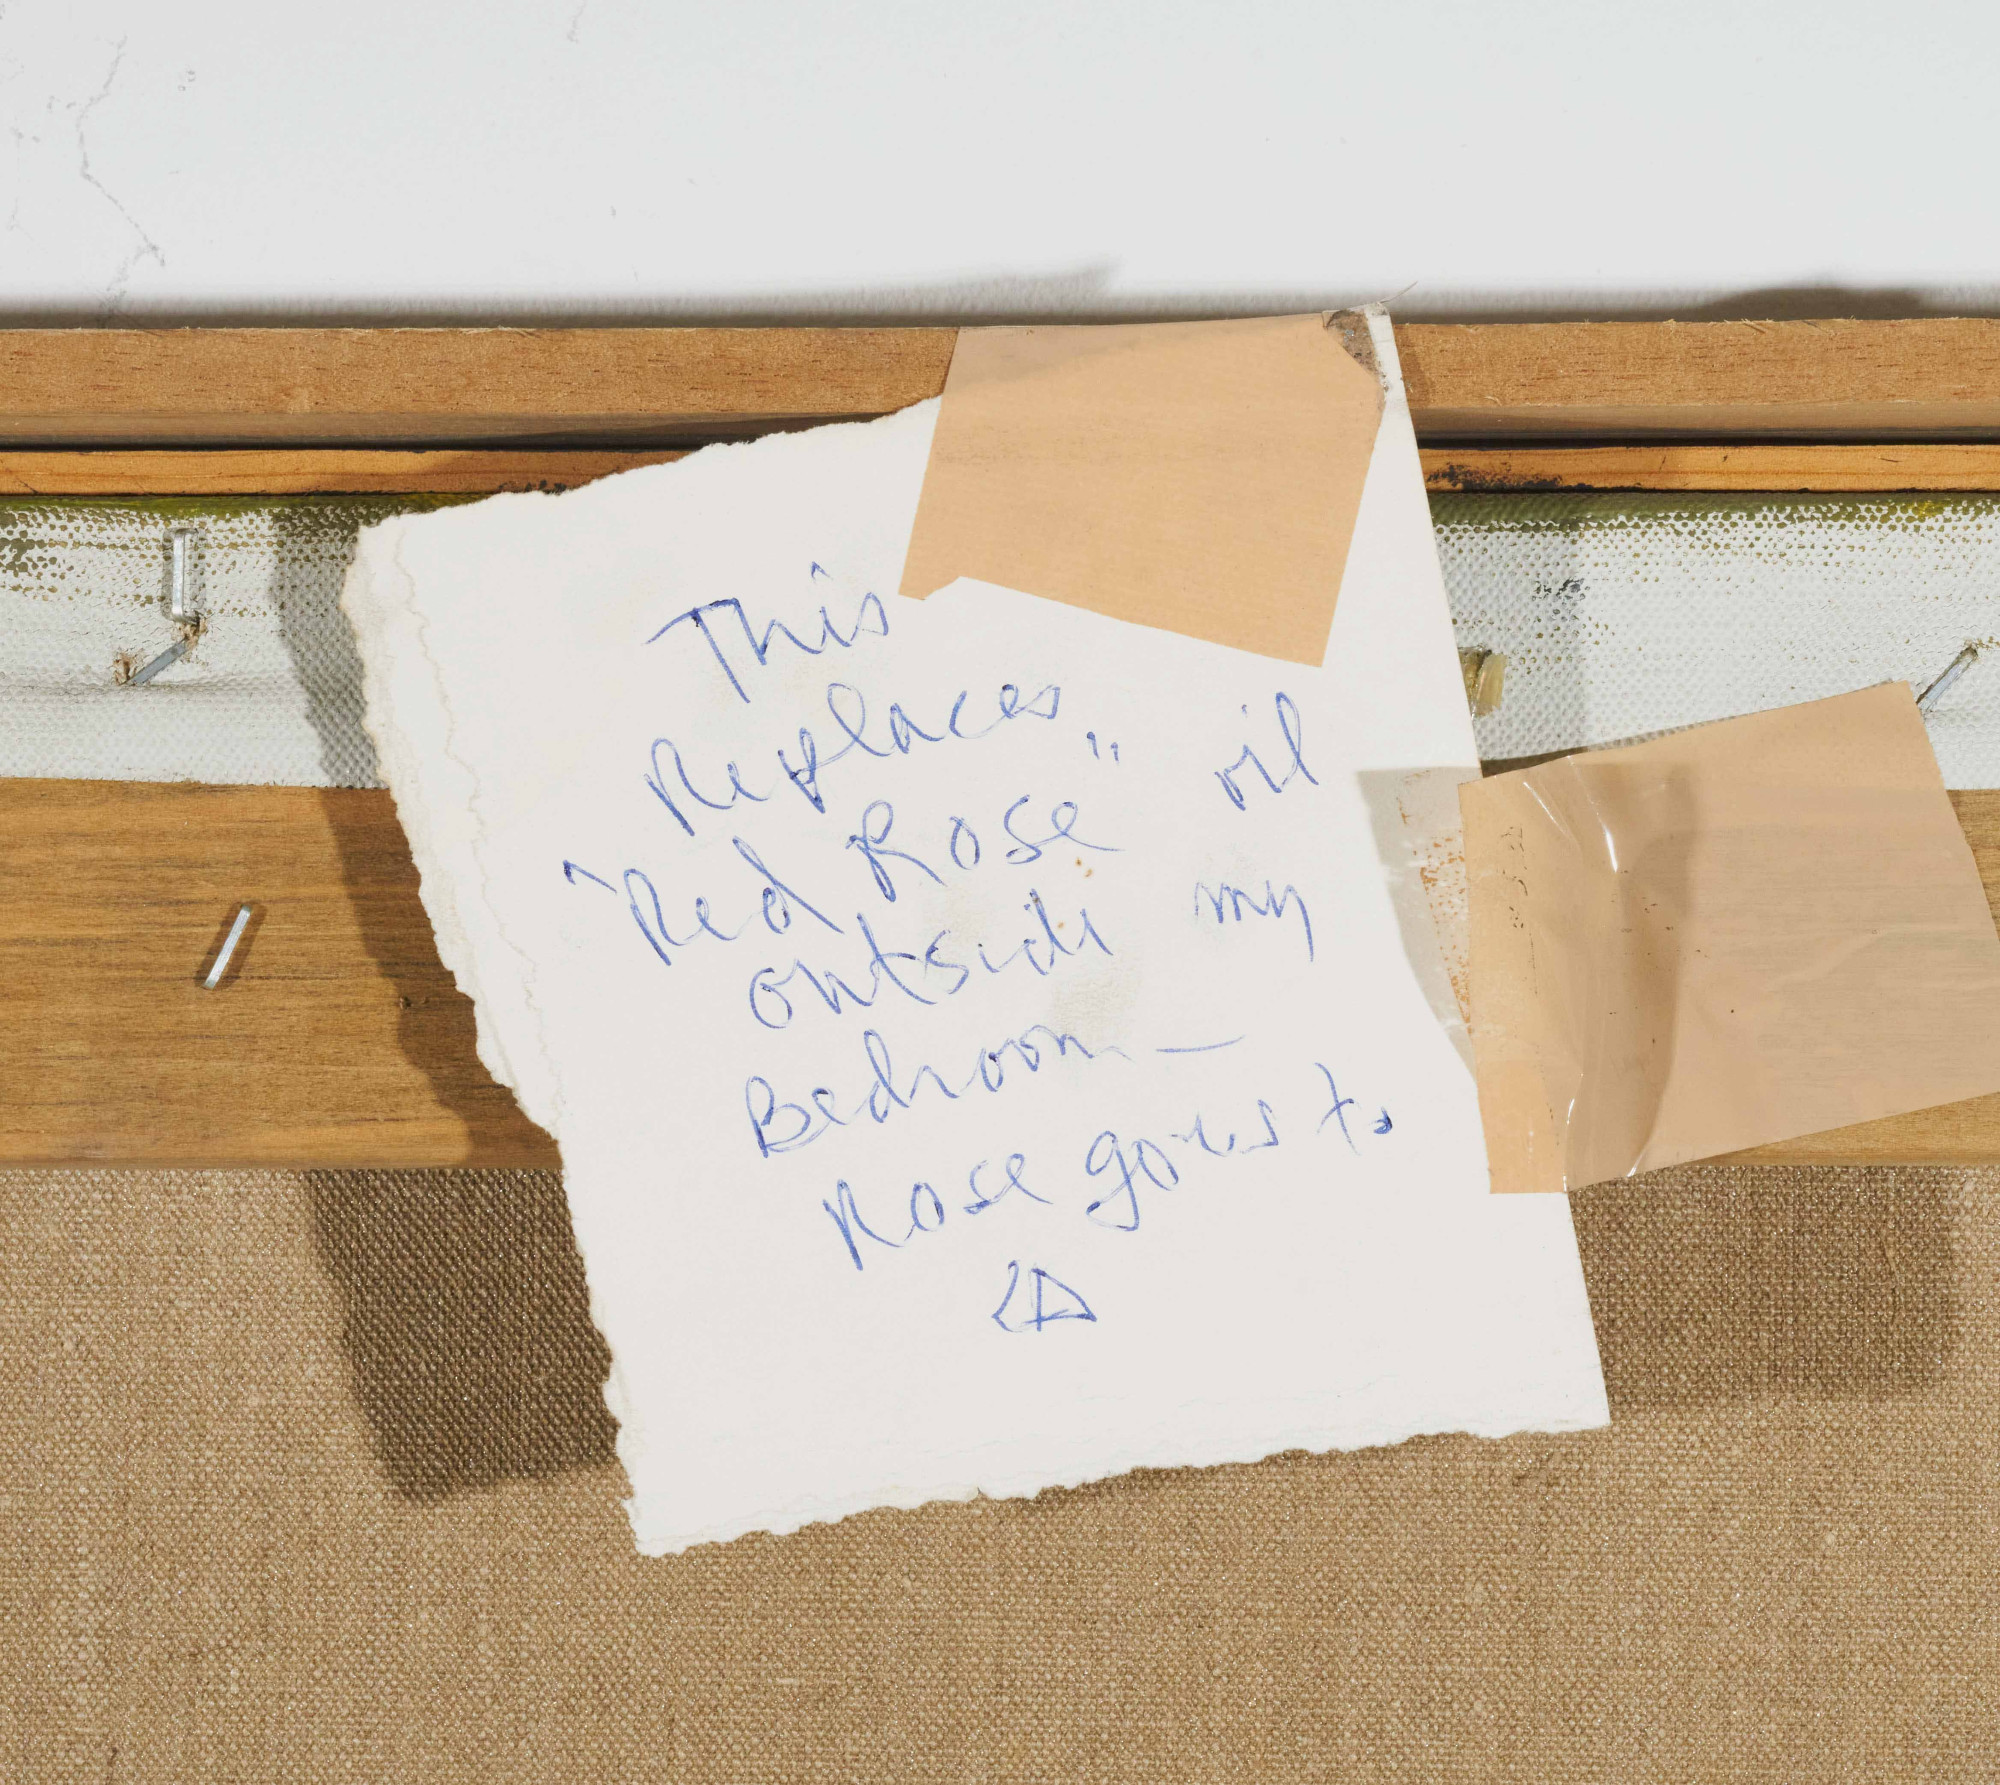 This
Replaces
"Red Rose" oil
outside my
Bedroom —
Rose goes to
LA